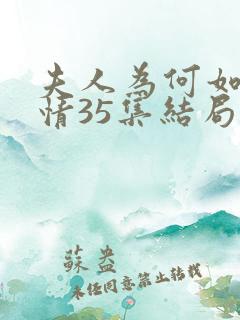 夫人為何如
情35集結局
蘇盎
未经同意禁止转载